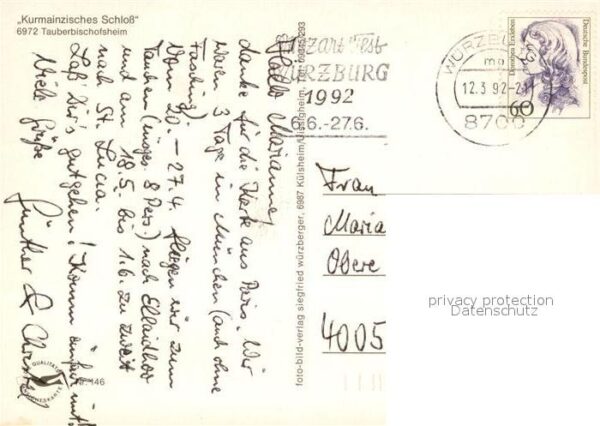 „Kurmainzisches Schloß"
6972 Tauberbischofsheim
Hallo Marianne,
danke für die Karte aus Paris. Wir
waren 3 Tage in München (auch ohne
Fasching).
Vom 20. – 27.4. fliegen wir zum
Tauchen (insges. 8 Pers.) nach Ellaidhoo
und am 18.5. bis 1.6. zu zweit
nach St. Lucia.
Laß Dir's gut gehen! Komm einfach mit!
Viele Grüße
Günther &
Nr. 146
foto-bild-verlag siegfried würzberger, 6987 Külsheim/
Mozart Fest
WÜRZBURG
1992
6.6.-27.6.
WÜRZBURG
12.3.92-21
8700
Dorothea Erxleben
Deutsche Bundespost
60
Frau
Maria
Obere
4005
privacy protection
Datenschutz